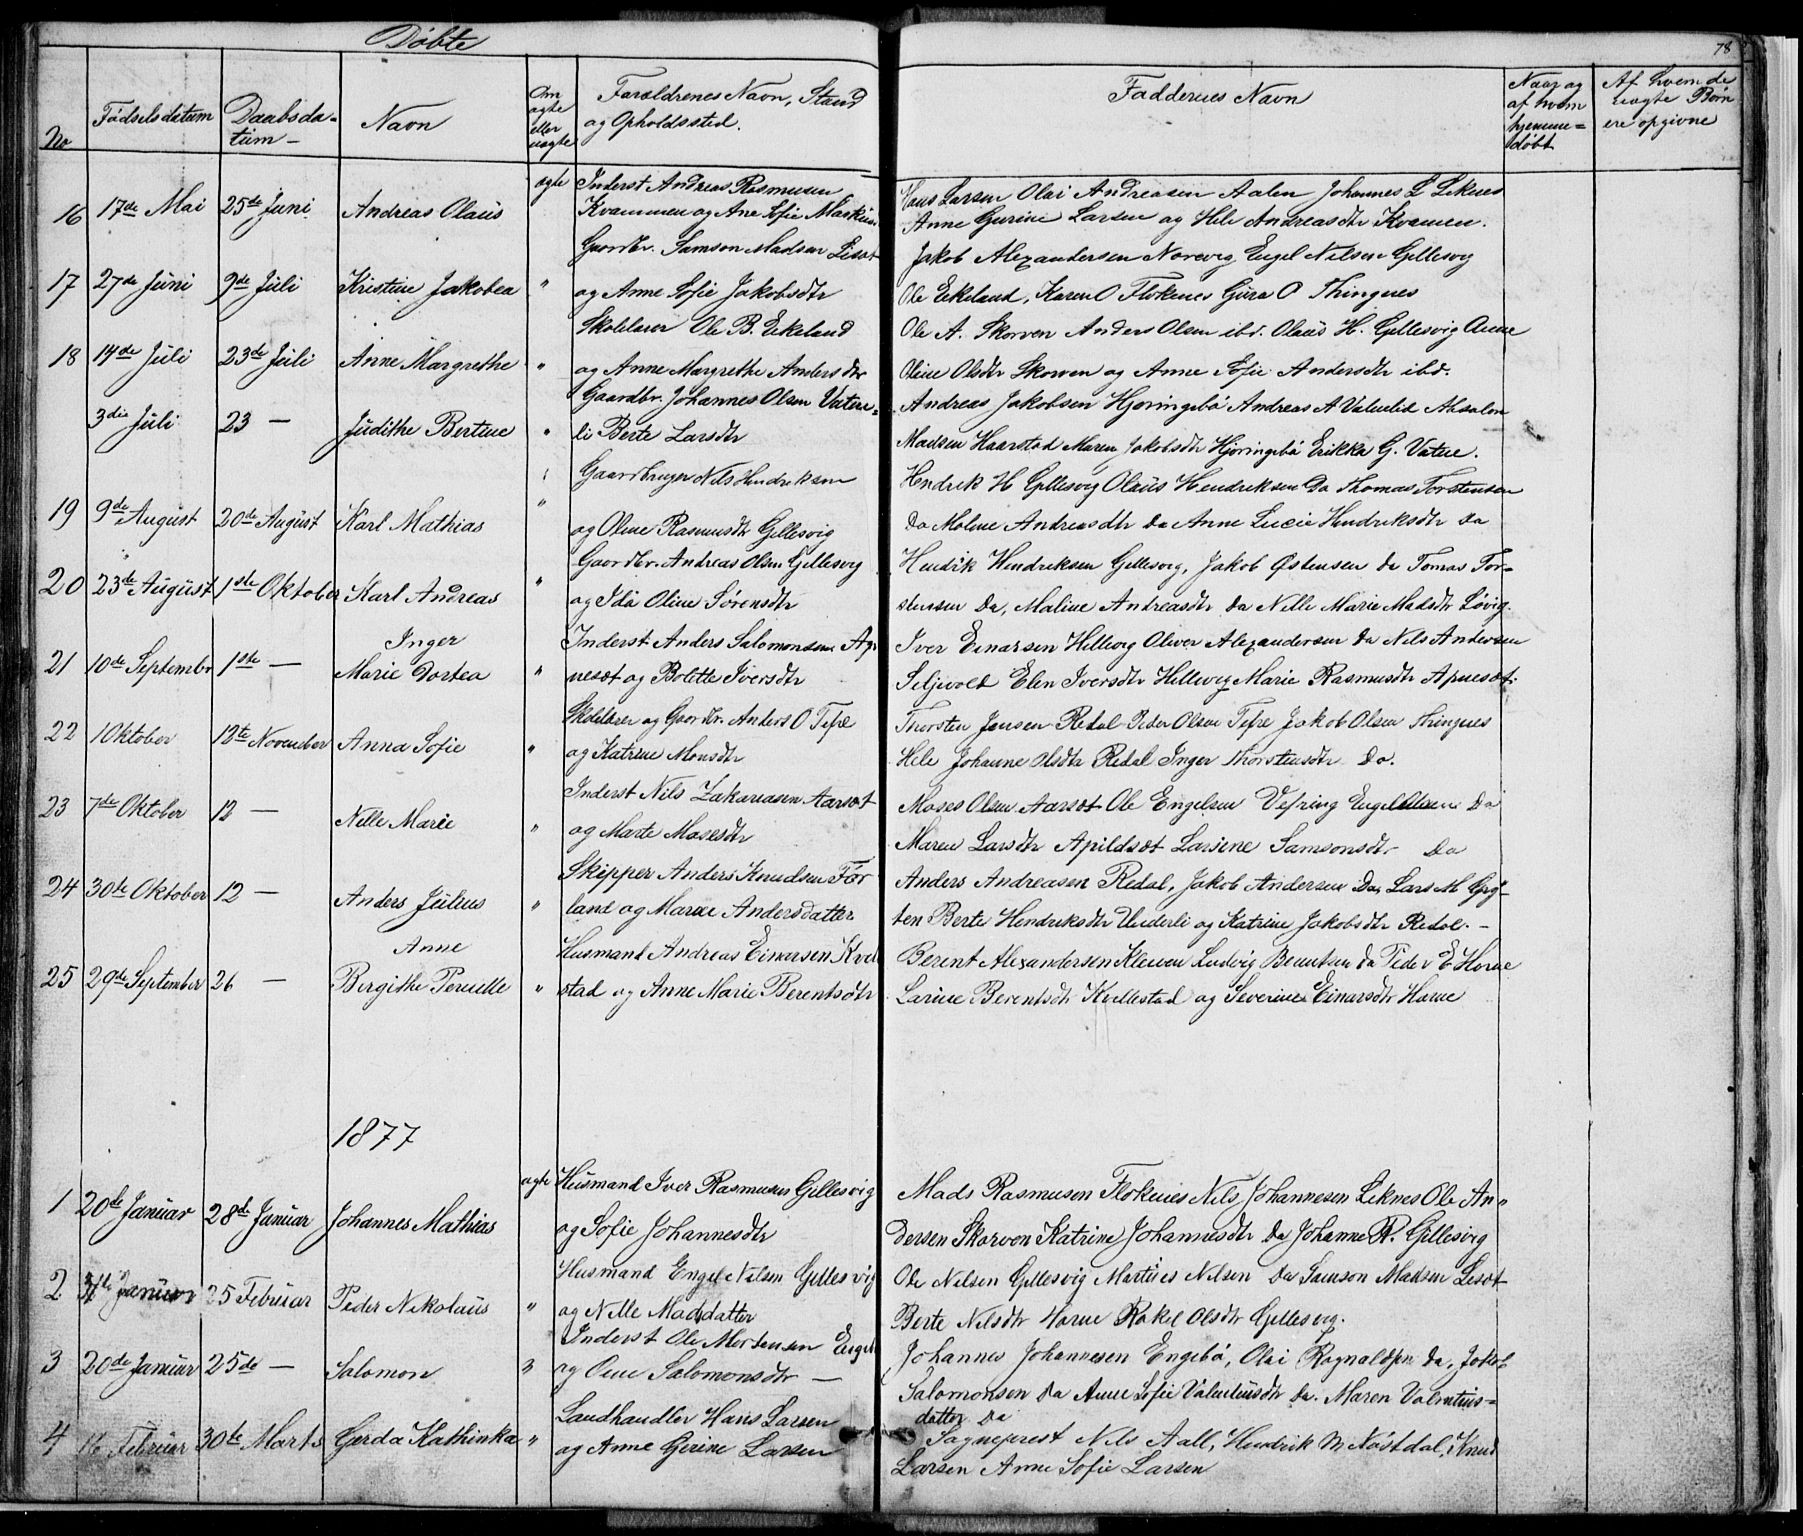 Døbte
78
No
Fødselsdatum
Daabsda-
tum -
Navn
Om
ægte
eller
uægte
Forældrenes Navn, Stand
og Opholdssted.
Faddernes Navn
Naar og
af hvem
hjemme=
døbt
Af hvem de
uægte Børn
ere opgivne
16 17de Mai 25de Juni Andreas Olaüs ægte Inderst Andreas Rasmusen
Kvammen og Ane Sofie
Hans Larsen Olai Andreasen Aalen Johannes L Leknes
Anne Gurine Larsen og Hele Andreasdtr Kvamen.
17 27de Juni 9de Juli Kristine Jakobea " Gaardbr. Samson Madsen Lisæt
og Anne Sofie Jakobsdtr
Jakob Alexandersen Norevig Engel Nilsen Gillesvig
Ole Eikeland, Karen O Flokenes Güra O Thingnes
18 14de Juli 23de Juli Anne Margrethe " Skolelærer Ole B. Eikeland
og Anne Margrethe Andersdtr
Ole A. Skorven Anders Olsen ibd. Olaüs H. Gillesvig Anne
Oline Olsdtr Skorven og Anne Sofie Andersdtr ibd.
3die Juli 23 - Judithe Bertine " Gaardbr. Johannes Olsen Vatne=
li Berte Larsdtr
Andreas Jakobsen Hjoringebø Andreas A Valeslid Absalon
Madsen Haarstad Maren Jakobsdtr Hjoringebø Erikka G. Vatne.
19 9de August 20de August Karl Mathias " Gaardbruger Nils Hendriksen
og Oline Rasmusdtr Gillesvig
Hendrik H Gillesvig Olaüs Hendriksen Do Thomas Torstensen
Do Moline Andreasdtr Do Anne Lucie Hendriksdtr Do
20 23de August 1ste Oktober Karl Andreas " Gaardbr. Andreas Olsen Gillesvig
og Ida Oline Sørensdtr
Hendrik Hendriksen Gillesvig, Jakob Østensen do Tomas Tor-
stensen Do, Maline Andreasdtr Do Nille Marie Madsdtr Løvig.
21 10de Septembr 1ste - Inger
Marie Dortea " Inderst Anders Salomonsen Ap-
nesæt og Bolette Iversdtr
Iver Einarsen Hillevig Oliver Alexandersen Do Nils Andersen
Seljevold Elen Iversdtr Hillevig Marie Rasmusdtr Apnesæt.
22 1 Oktober 12te November Anna Sofie " Skolelærer og Gaardbr. Anders O Tefre
og Katrine Monsdtr
Thorsten Jensen Redal Peder Olsen Tefre Jakob Olsen Thingnes
Hele Johanne Olsdtr Redal Inger Thorstensdtr Do.
23 7de Oktober 12 - Nille Marie " Inderst Nils Zakariasen Aarsæt
og Marte Mosesdtr
Moses Olsen Aarsæt Ole Engelsen Vefring Engel Olsen Do
Maren Larsdtr Apildsæt Larsine Samsonsdtr Do
24 30te Oktober 12 - Anders Julius " Skipper Anders Knudsen Før
land og Maren Andersdatter
Anders Andreasen Redal, Jakob Andersen Do, Lars M Grø-
ten Berte Hendriksdtr Underli og Katrine Jakobsdtr Redal. -
25 29de September 26 - Anne
Birgithe Pernille " Husmand Andreas Einarsen Kvel
stad og Anne Marie Berentsdtr
Berent Alexandersen Kleiven Ludvig Berentsen Do Peder E Horne
Larine Berentsdtr Kvellestad og Severine Einarsdtr Horne
1877
1 20de Januar 28de Januar Johannes Mathias ægte Husmand Iver Rasmusen Gillesvig
og Sofie Johannesdtr
Mads Rasmusen Flokenes Nils Johannesen Leknes Ole An-
dersen Skorven Katrine Johannesdtr Do Johanne R. Gillesvig
2 Januar 25 Februar Peder Nikolaüs " Husmand Engel Nilsen Gillesvig
og Nille Madsdatter
Ole Nilsen Gillesvig Martines Nilsen Do Samson Madsen Lisæt
Berte Nilsdtr Horne Rakel Olsdtr Gillesvig.
3 20de Januar 25de - Salomon " Inderst Ole Mortensen Engeb
og Oline Salomonsdtr -
Johannes Johannesen Engebø, Olai Ragnaldsen Do, Jakob
Salomonsen Do Anne Sofie Valentinsdtr Do. Maren Valentins=
datter Do
4 16 Februar 30te Marts Gerda Kathinka " Landhandler Hans Larsen
og Anne Gerine Larsen
Sogneprest Nils Aall, Hendrik M Nøstdal, Knud
Larsen Anne Sofie Larsen